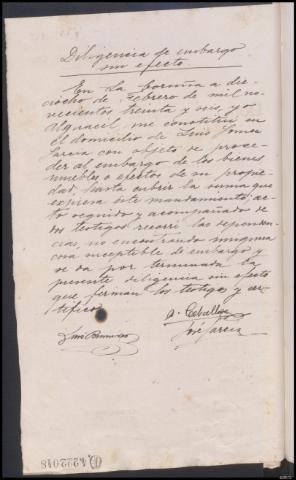 Diligencia de embargo
sin efecto.
En La Coruña a die-
ciocho de Febrero de mil no-
vecientos treinta y seis, yo
Alguacil, me constituí en
el domicilio de Luis
García con objeto de proce-
der al embargo de los bienes
muebles o efectos de su propie-
dad, hasta cubrir la suma que
expresa este mandamiento, ac-
to seguido y acompañado de
dos testigos recorrí las dependen-
cias, no encontrando ninguna
cosa susceptible de embargo y
se da por terminada la
presente diligencia sin efecto
que firman los testigos y cer-
tifico.
A. Ceballos
Luis José García
4222048